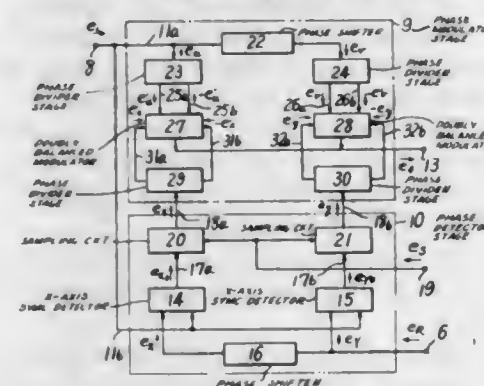 e_s
11a
22
PHASE SHIFTER
9
PHASE
MODULATOR
STAGE
8
e_u
e_v
23
24
PHASE
DIVIDER
STAGE
PHASE
DIVIDER
STAGE
25a
25b
26a
26b
27
28
DOUBLY
BALANCED
MODULATOR
DOUBLY
BALANCED
MODULATOR
31a
31b
32a
32b
13
PHASE
DIVIDER
STAGE
29
30
PHASE
DIVIDER
STAGE
18a
18b
10
PHASE
DETECTOR
STAGE
SAMPLING CKT
20
SAMPLING CKT
21
e_S
17a
17b
19
X-AXIS
SYNC DETECTOR
14
SYNC DETECTOR
15
11b
e_x'
16
e_Y
e_R
6
PHASE SHIFTER